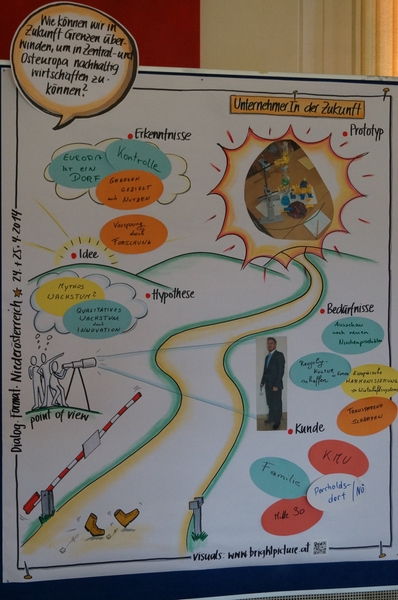 Wie können wir in
Zukunft Grenzen über-
winden, um in Zentral- und
Osteuropa nachhaltig
wirtschaften zu
können?
UnternehmerIn der Zukunft
Erkenntnisse
Prototyp
EUROPA
IST EIN
DORF
Kontrolle
GEZIELT
NUTZEN
Vorsprung
durch
FORSCHUNG
Idee
Hypothese
MYTHOS
WACHSTUM?
QUALITATIVES
WACHSTUM
durch
INNOVATION
Bedürfnisse
Ausschau
nach neuen
Nischenprodukten
Recycling-
KULTUR
schaffen
Europäische
HARMONISIERUNG
TRANSPARENZ
SCHAFFEN
point of view
Kunde
Familie
KMU
Mitte 30
Dialog-Format Niederösterreich 24.+25.4.2014
visuals: www.brightpicture.at